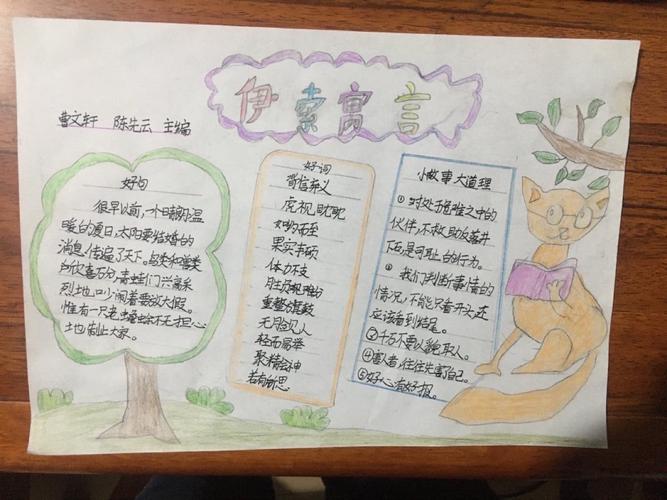 伊索寓言
曹文轩 陈先云 主编
好句
很早以前,一个晴朗温
暖的夏日,太阳要结婚的
消息传遍了天下。鸟类和兽类
都欣喜若狂,青蛙们兴高采
烈地叫闹着要放大假。
惟有一只老蟾蜍不无担心
地制止大家。
好词
背信弃义
虎视眈眈
果实丰硕
体力不支
重整旗鼓
无脸见人
轻而易举
聚精会神
若有所思
小故事大道理
①对处于危难之中的
伙伴,不救助反落井
下石是可耻的行为。
②我们判断事情的
情况,不能只看开头,还
应该看到结尾。
③千万不要以貌取人。
④害人者,往往先害了自己。
⑤好心有好报。